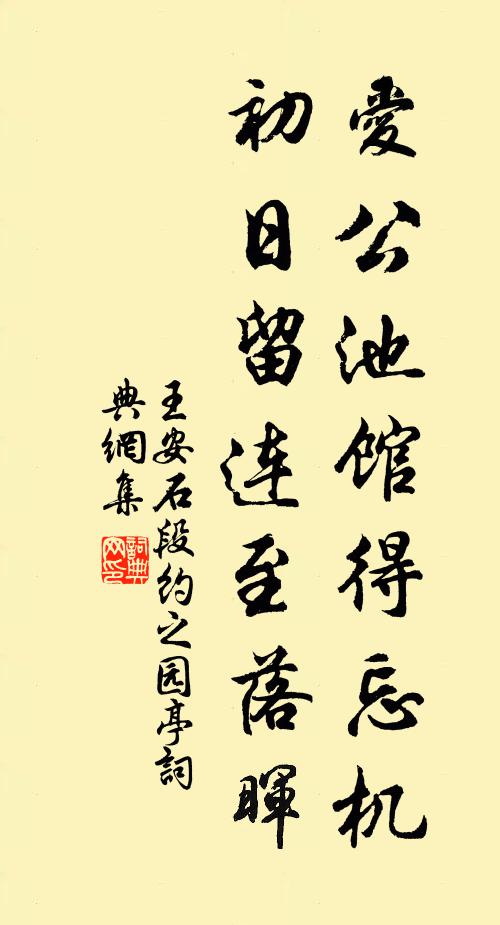 愛公池馆得忘机
初日留连至落暉
王安石段约之园亭詞
典網集
詞典网印